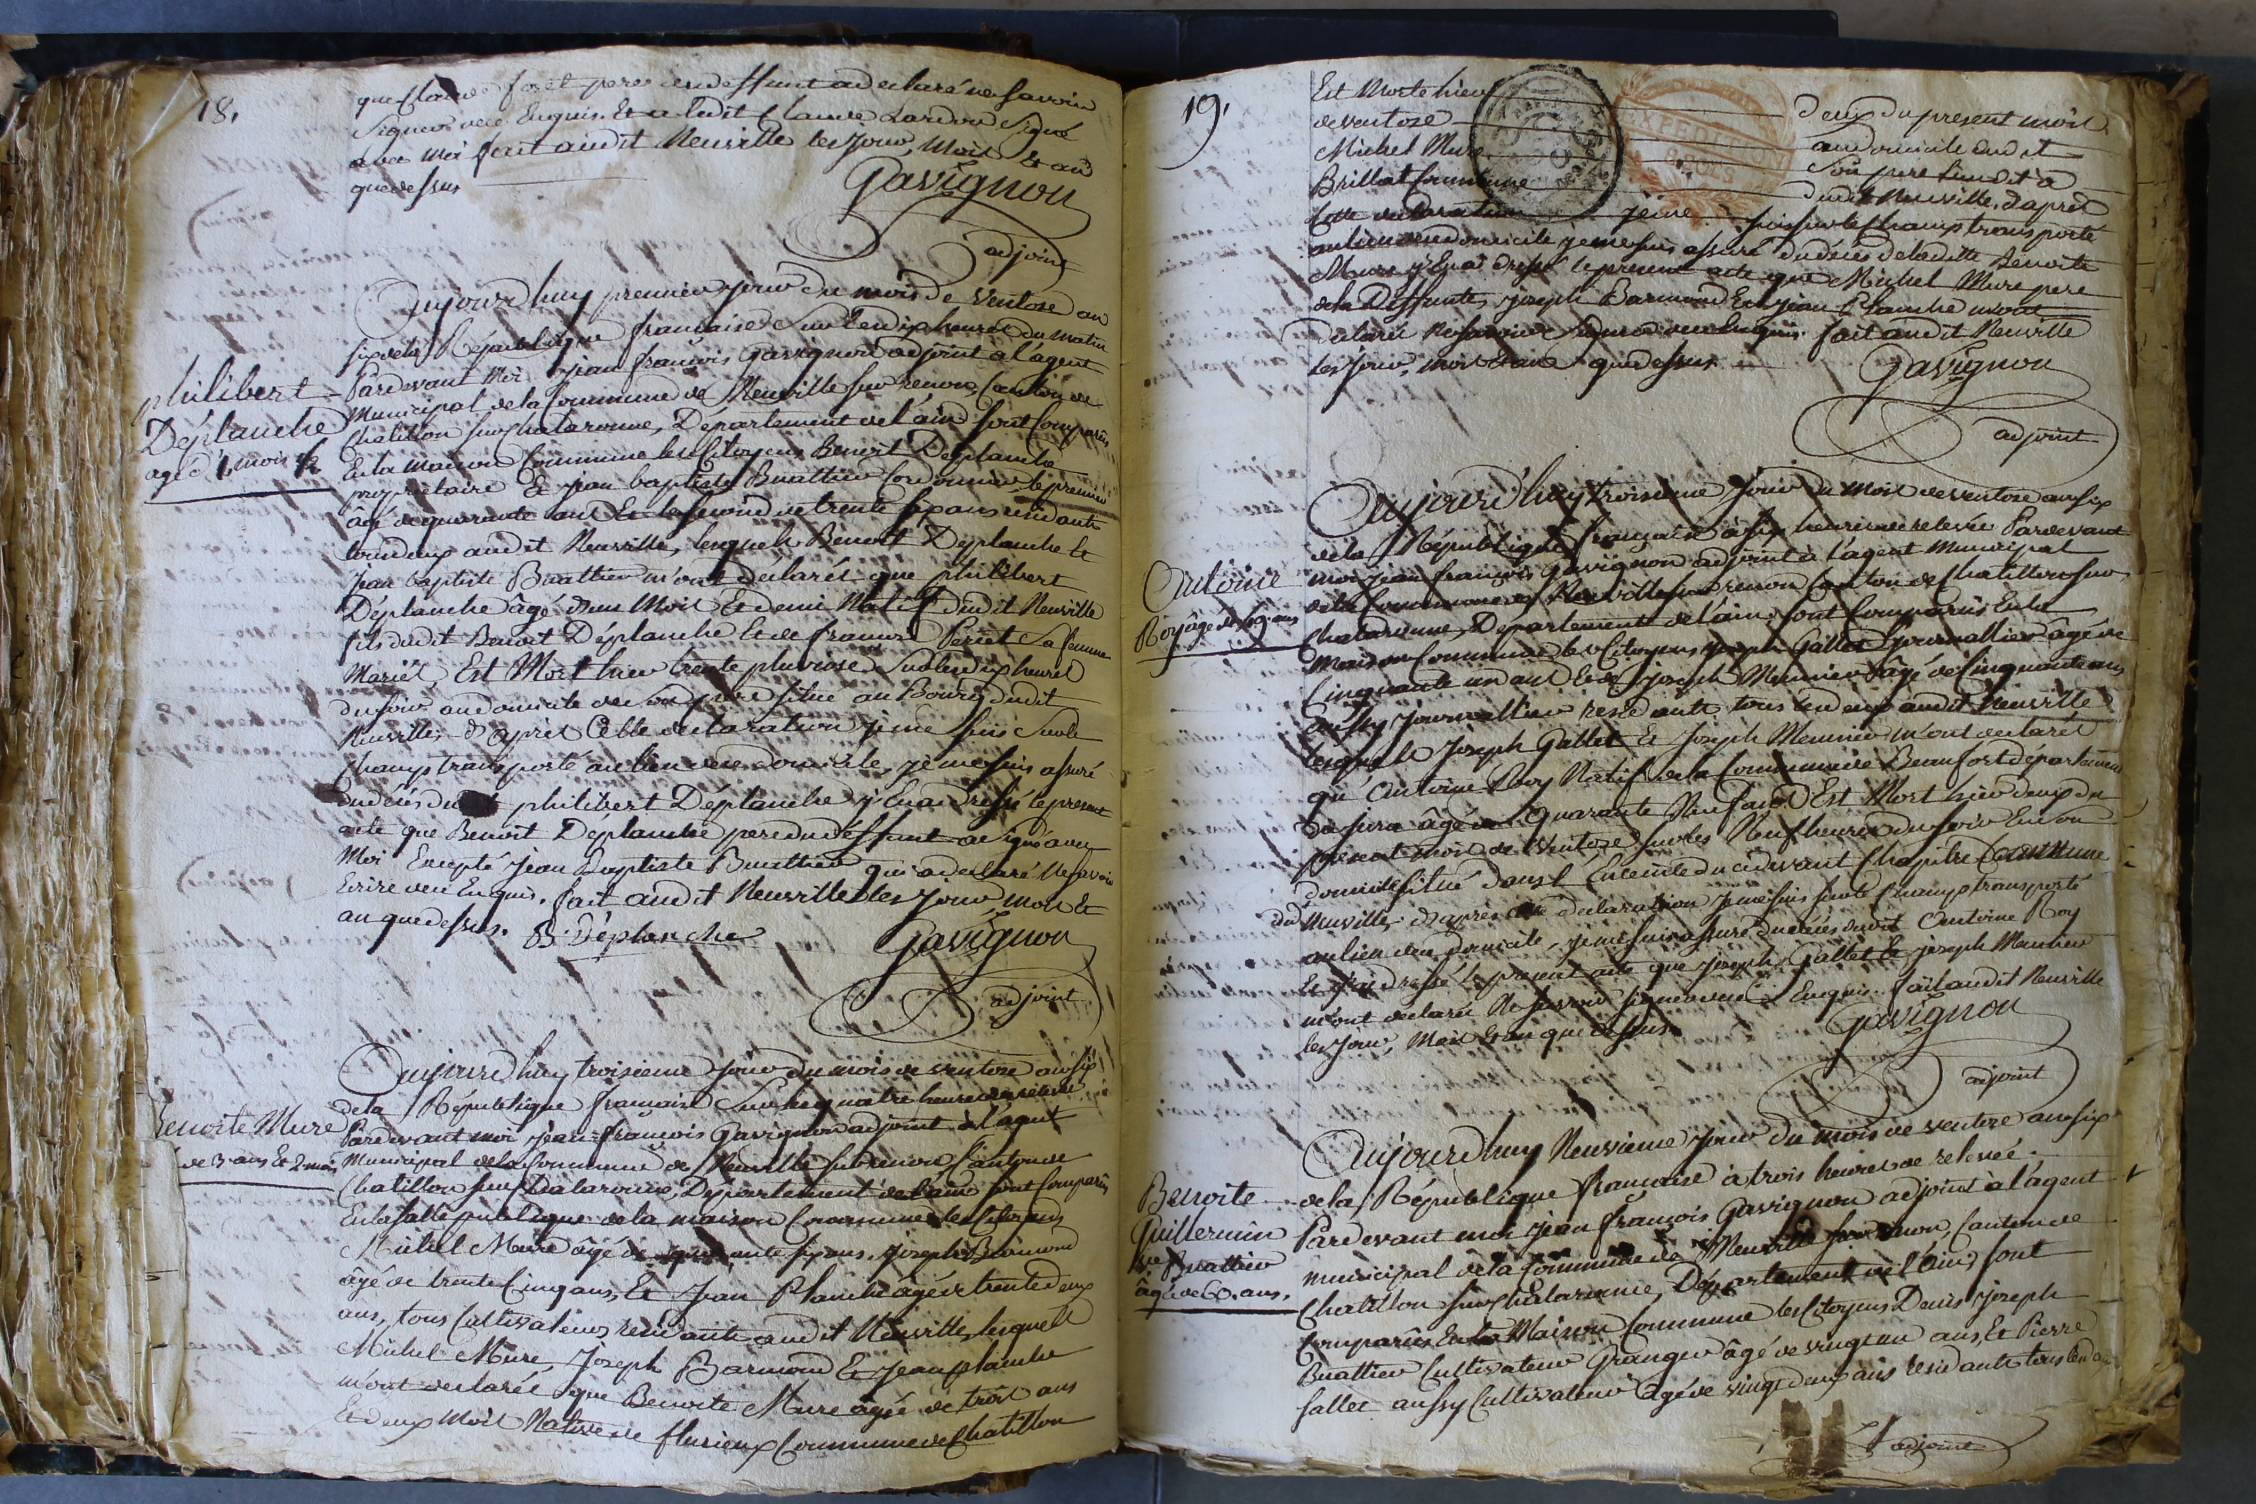 18.
que Claude foret pere du deffunt a declaré ne savoir
signer de ce Enquis. Et a ledit Claude Lardon signé
avec moi fait audit Neuville les jour, mois Et an
que dessus
Gavignon
adjoint
Aujourd'huy premier jour du mois de ventose an
six de la République française sur les dix heures du matin
Pardevant moi jean françois Gavignon adjoint a l'agent
municipal de la Commune de Neuville sur renon, Canton de
Chatillon sur Chalaronne, Département de l'ain sont Comparûs
En la maison Commune les Citoyens Benoit Déplanche
proprietaire Et jean baptiste Buattier Cordonnier, le premier
âgé de quarante ans Et le second de trente six ans residants
tous deux audit Neuville, lesquels Benoit Déplanche Et
jean baptiste Buattier m'ont déclarés que philibert
Déplanche âgé d'un mois Et demi Natif dudit Neuville
fils dudit Benoit Déplanche Et de françoise Periet sa femme
Mariés, Est Mort hier trente pluviose sur les dix heures
du soir au domicile de son pere situé au Bourg dudit
Neuville, d'après Cette declaration je me suis sur le
Champ transporté au lieu de ce domicile, je me suis assuré
du décès dudit philibert Déplanche j'En ai dressé le present
acte que Benoit Déplanche pere du deffunt a signé avec
Moi Excepté jean Baptiste Buattier qui a declaré Ne savoir
Ecrire de ce Enquis. fait audit Neuville les jour mois Et
an que dessus. B. Déplanche
Gavignon
adjoint
philibert
Déplanche
agé d'1 mois 1/2
Aujourd'huy troisieme jour du mois de ventose an six
de la République française sur les quatre heures de relevée
Pardevant moi jean françois Gavignon adjoint à l'agent
Municipal de la Commune de Neuville sur renon, Canton de
Chatillon sur Chalaronne, Département de l'ain sont Comparûs
En la salle publique de la maison Commune les Citoyens
Michel Mure âgé de quarante six ans, joseph Barmond
âgé de trente Cinq ans, Et Jean Planche âgé de trente deux
ans, tous Cultivateurs residants audit Neuville, lesquels
Michel Mure, Joseph Barmond Et Jean planche
m'ont declarés que Benoite Mure agée de trois ans
Et deux mois Native de flurieux Commune de Chatillon
Benoite Mure
de 3 ans Et 2 mois
19.
Est Morte hier deux du present mois
de ventose au domicile dudit
Michel Mure son pere lieu dit a
Brillat Commune dudit Neuville, d'après
Cette declaration je me suis sur le Champ transporté
au lieu de ce domicile, je me suis assuré du décès de ladite Benoite
Mure, j'En ai dressé le present acte que Michel Mure pere
de la Deffunte, joseph Barmond Et Jean Planche m'ont
declaré Ne savoir signer de ce Enquis. fait audit Neuville
les jour, mois Et an que dessus
Gavignon
adjoint
EXPEDITION
8 SOLS
Aujourd'huy troisieme jour du mois de ventose an six
de la République française à six heures de relevée Pardevant
moi jean françois Gavignon adjoint à l'agent Municipal
de la Commune de Neuville sur renon Canton de Chatillon sur
Chalaronne, Département de l'ain, sont Comparûs En la
maison Commune les Citoyens joseph Gallet Journallier âgé de
Cinquante un ans Et de joseph Meunier âgé de Cinquante ans
aussy journallier residants tous deux audit Neuville
lesquels Joseph Gallet Et Joseph Meunier m'ont declarés
qu'Antoine Roy Natif de la Commune de Beaufort département
du jura âgé de Quarante Neuf ans Est Mort hier deux du
present mois de ventose sur les Neuf heures du soir En son
domicile situé dans l'Enceinte du cidevant Chapitre Commune
du Neuville, d'après Cette declaration je me suis sur le Champ transporté
au lieu de ce domicile, je me suis assuré du décès dudit Antoine Roy
Et j'ai dressé le present acte que joseph Gallet Et joseph Meunier
m'ont declarés Ne savoir signer de ce Enquis. fait audit Neuville
les jour, Mois Et an que dessus
Gavignon
adjoint
Antoine
Roy âgé de 49 ans
Aujourd'huy Neuvieme jour du mois de ventose an six
de la République française à trois heures de relevée.
Pardevant moi jean françois Gavignon adjoint à l'agent
municipal de la Commune de Neuville sur renon, Canton de
Chatillon sur Chalaronne, Département de l'ain, sont
Comparûs En la Maison Commune les Citoyens Denis joseph
Buattier Cultivateur Granger âgé de vingt un ans, Et Pierre
sallet aussy Cultivateur âgé de vingt deux ans residants tous deux
adjoint
Benoite
Guillermin
ve Buattier
âgée de 60. ans.